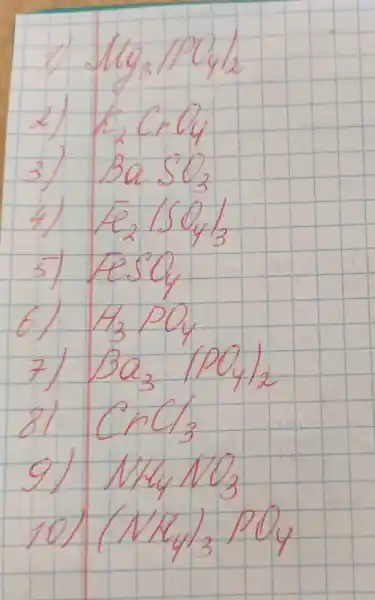 1) Mg₂(PO₄)₂
2) K₂CrO₄
3) BaSO₃
4) Fe₂(SO₄)₃
5) FeSO₄
6) H₃PO₄
7) Ba₃(PO₄)₂
8) CrCl₃
9) NH₄NO₃
10) (NH₄)₃PO₄